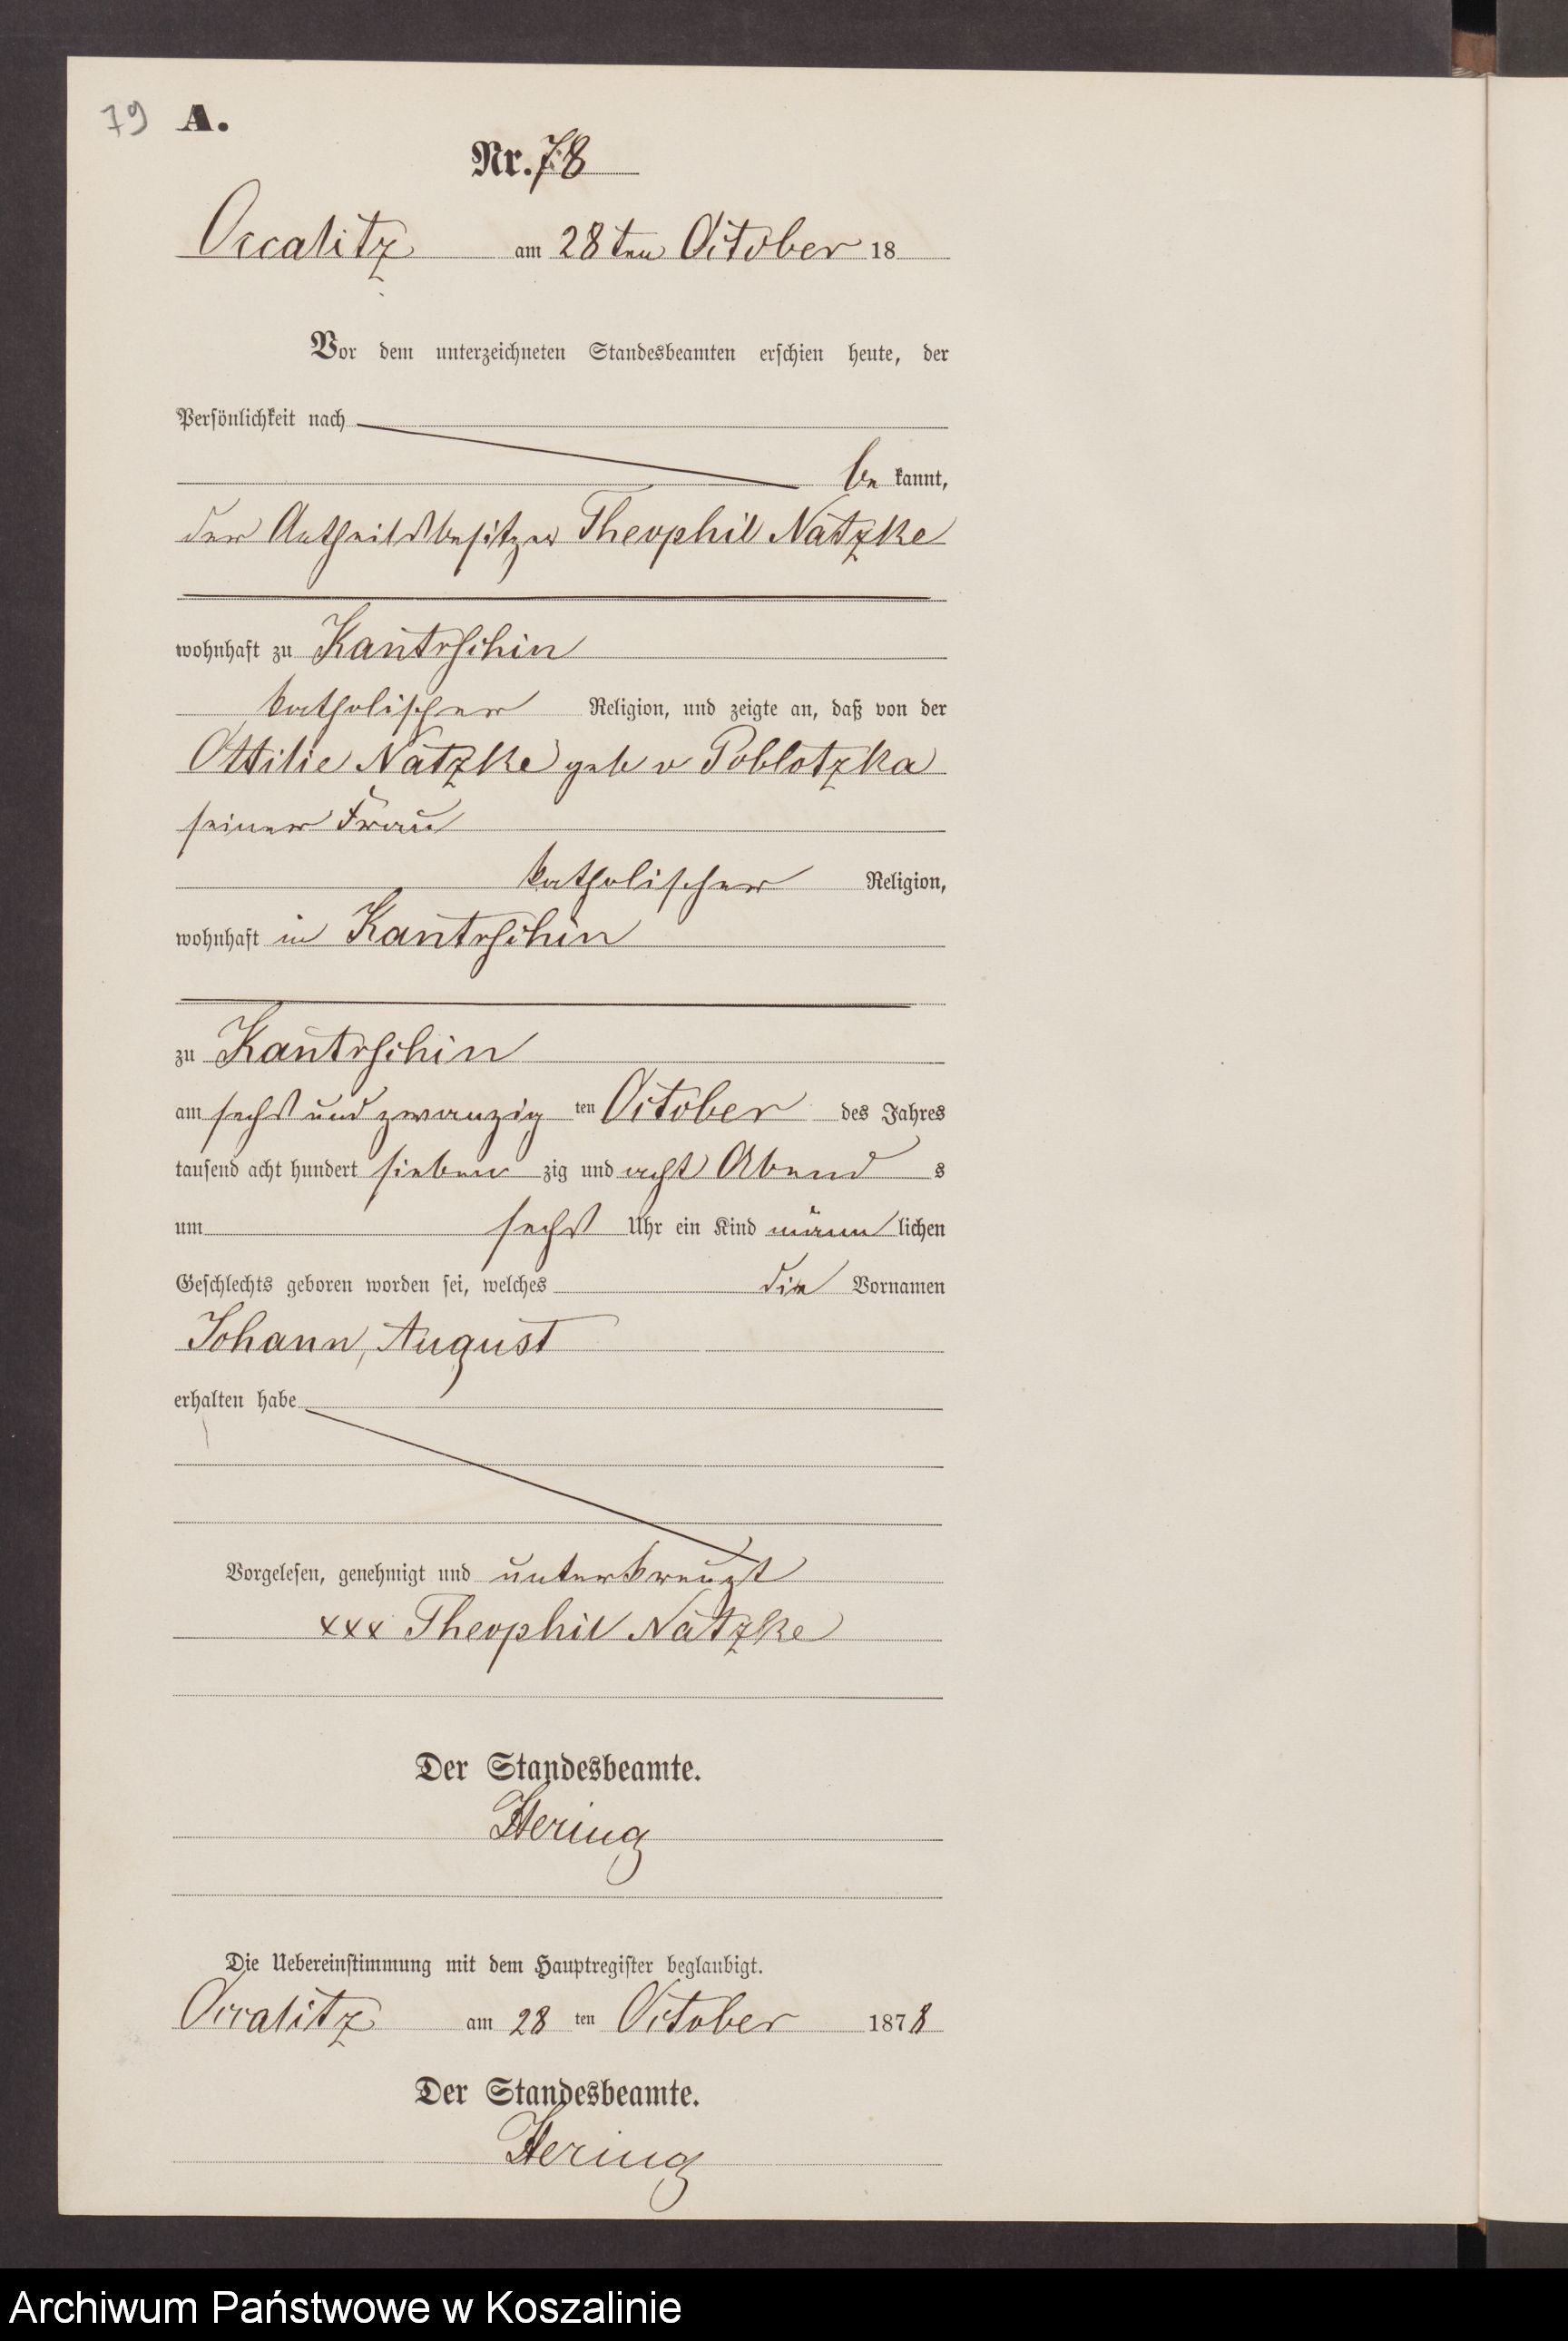 79 A.
Nr. 78
Occalitz am 28ten October 18
Vor dem unterzeichneten Standesbeamten erschien heute, der
Persönlichkeit nach
be kannt,
der Antheilsbesitzer Theophil Natzke
wohnhaft zu Kantrschin
katholischer Religion, und zeigte an, daß von der
Ottilie Natzke geb v Poblotzka
seiner Frau
katholischer Religion,
wohnhaft in Kantrschin
zu Kantrschin
am sechs und zwanzig ten October des Jahres
tausend acht hundert sieben zig und acht Abend s
um sechs Uhr ein Kind männ lichen
Geschlechts geboren worden sei, welches die Vornamen
Johann, August
erhalten habe
Vorgelesen, genehmigt und unterkreuzt
xxx Theophil Natzke
Der Standesbeamte.
Hering
Die Uebereinstimmung mit dem Hauptregister beglaubigt.
Occalitz am 28 ten October 1878
Der Standesbeamte.
Hering
Archiwum Państwowe w Koszalinie